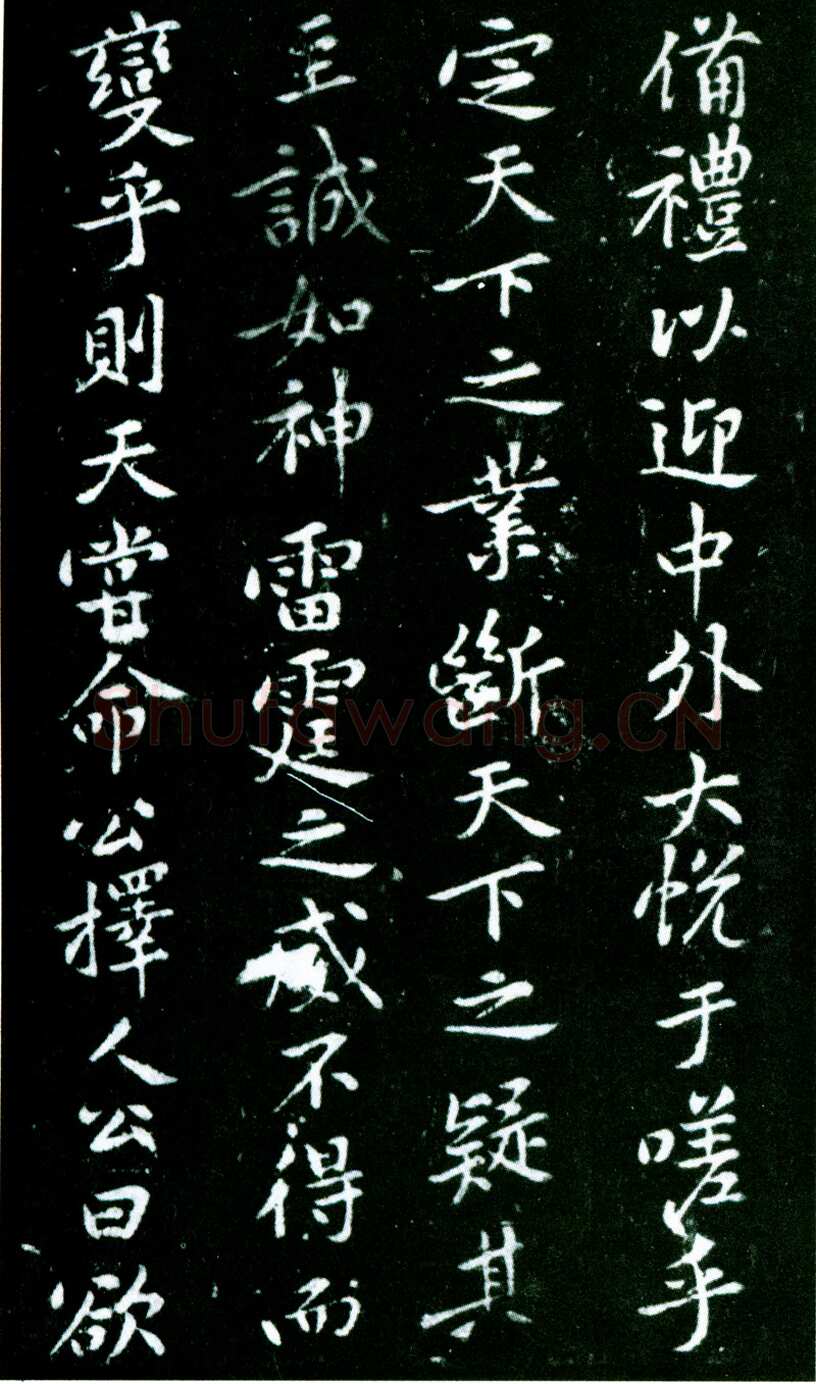 備禮以迎中外大悅于嗟乎
定天下之業斷天下之疑其
至誠如神雷霆之威不得而
變乎則天嘗命公擇人公曰欲
Shufawang.CN